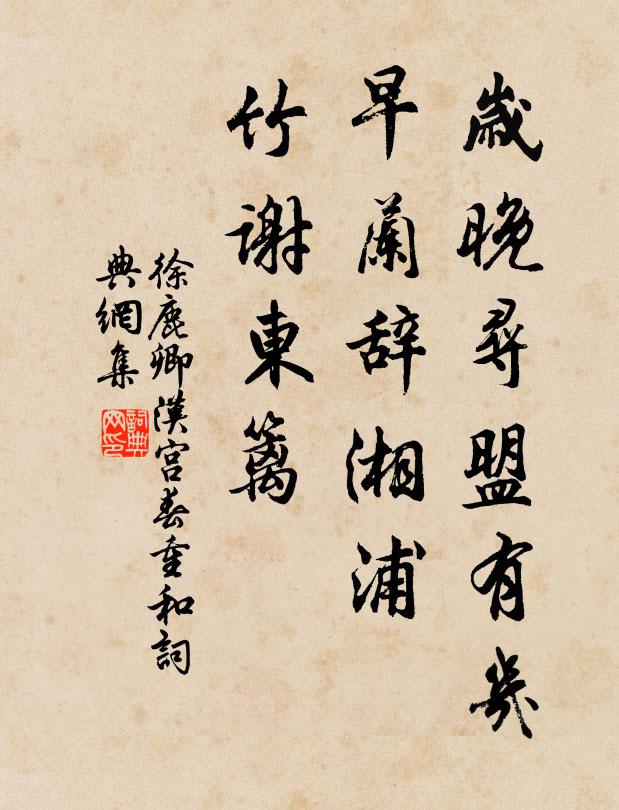 歲晚尋盟有幾
早蘭辭湘浦
竹謝東籬
徐鹿卿漢宮春重和詞
典網集
詞典網印